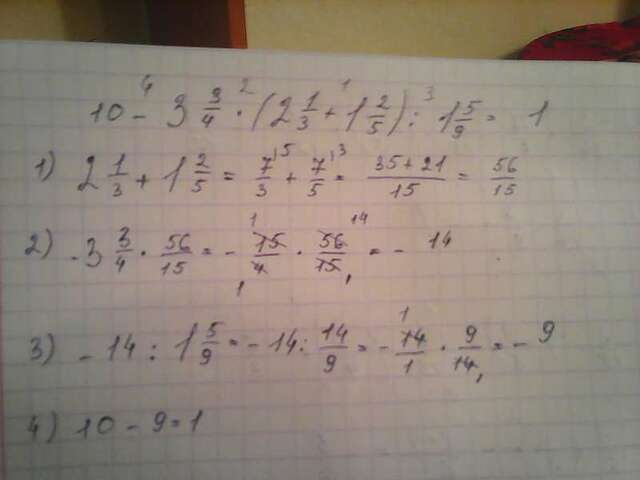 10 - 3 3/4 · (2 1/3 + 1 2/5) : 1 5/9 = 1
1) 2 1/3 + 1 2/5 = 7/3 + 7/5 = (35+21)/15 = 56/15
2) -3 3/4 · 56/15 = - 15/4 · 56/15 = - 14
3) -14 : 1 5/9 = -14 : 14/9 = - 14/1 · 9/14 = - 9
4) 10 - 9 = 1